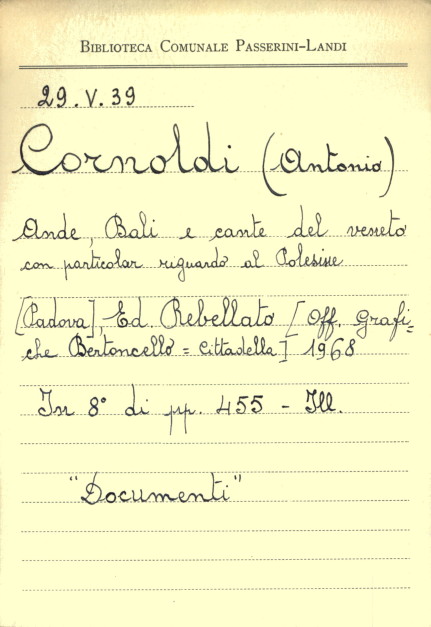 Biblioteca Comunale Passerini-Landi
29.V.39
Cornoldi (Antonio)
Ande, Bali e cante del veneto
con particolar riguardo al Polesine
[Padova], Ed. Rebellato [Off. Grafi=
che Bertoncello = Cittadella] 1968
In 8° di pp. 455 - Ill.
"Documenti"